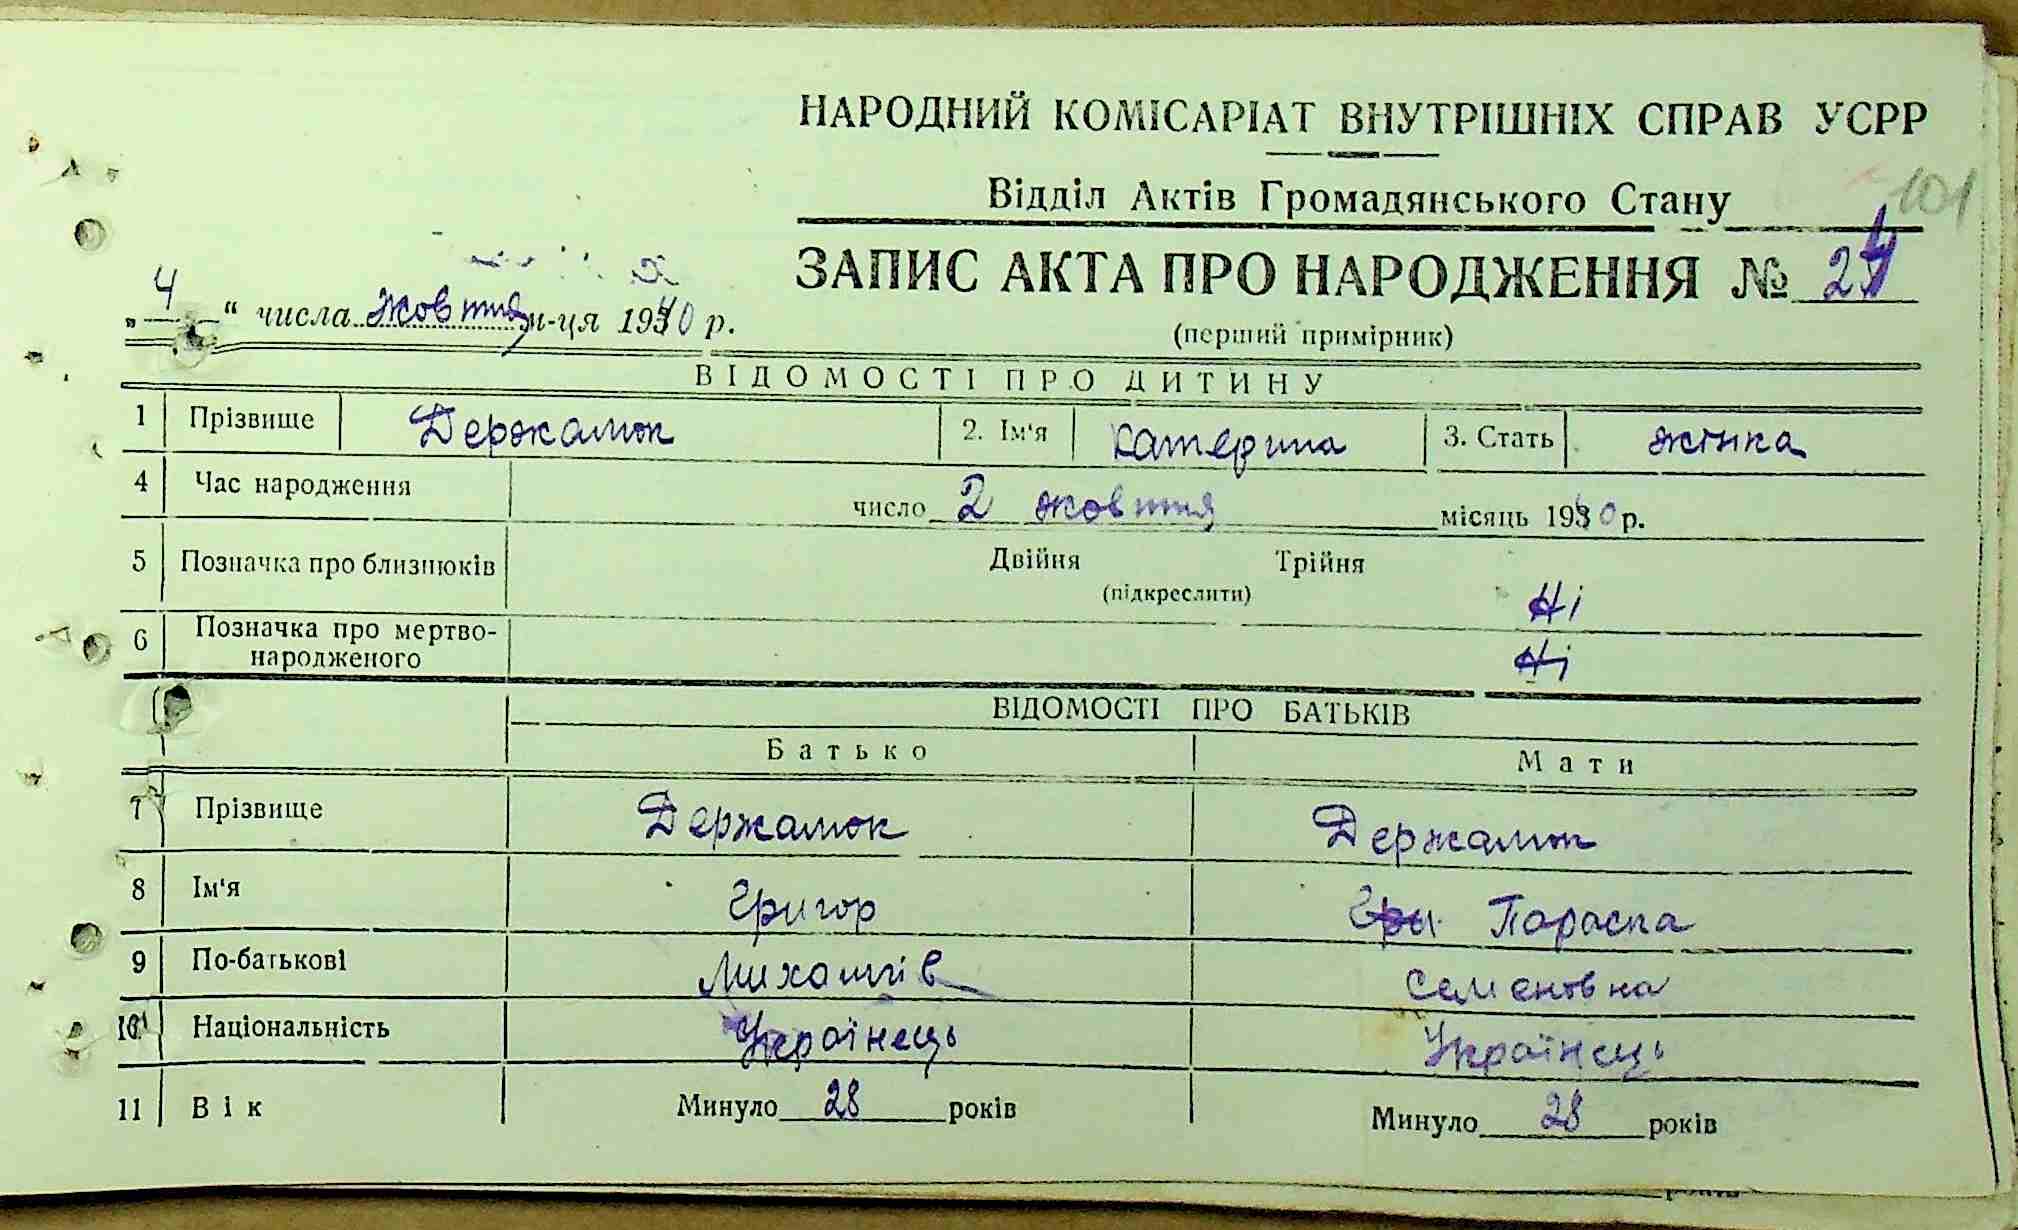 НАРОДНИЙ КОМІСАРІАТ ВНУТРІШНІХ СПРАВ УСРР
Відділ Актів Громадянського Стану
101
ЗАПИС АКТА ПРО НАРОДЖЕННЯ № 24
„ 4 “ числа жовтня м-ця 1940 р.
(перший примірник)
ВІДОМОСТІ ПРО ДИТИНУ
1 Прізвище Держалюк 2. Ім'я Катерина 3. Стать жінка
4 Час народження число 2 жовтня місяць 1940 р.
5 Позначка про близнюків Двійня Трійня
(підкреслити)
Ні
6 Позначка про мертво-
народженого Ні
ВІДОМОСТІ ПРО БАТЬКІВ
Батько Мати
7 Прізвище Держалюк Держалюк
8 Ім'я Григор Гри Параска
9 По-батькові Михайлів Семеновна
10 Національність Українець Українець
11 Вік Минуло 28 років Минуло 28 років